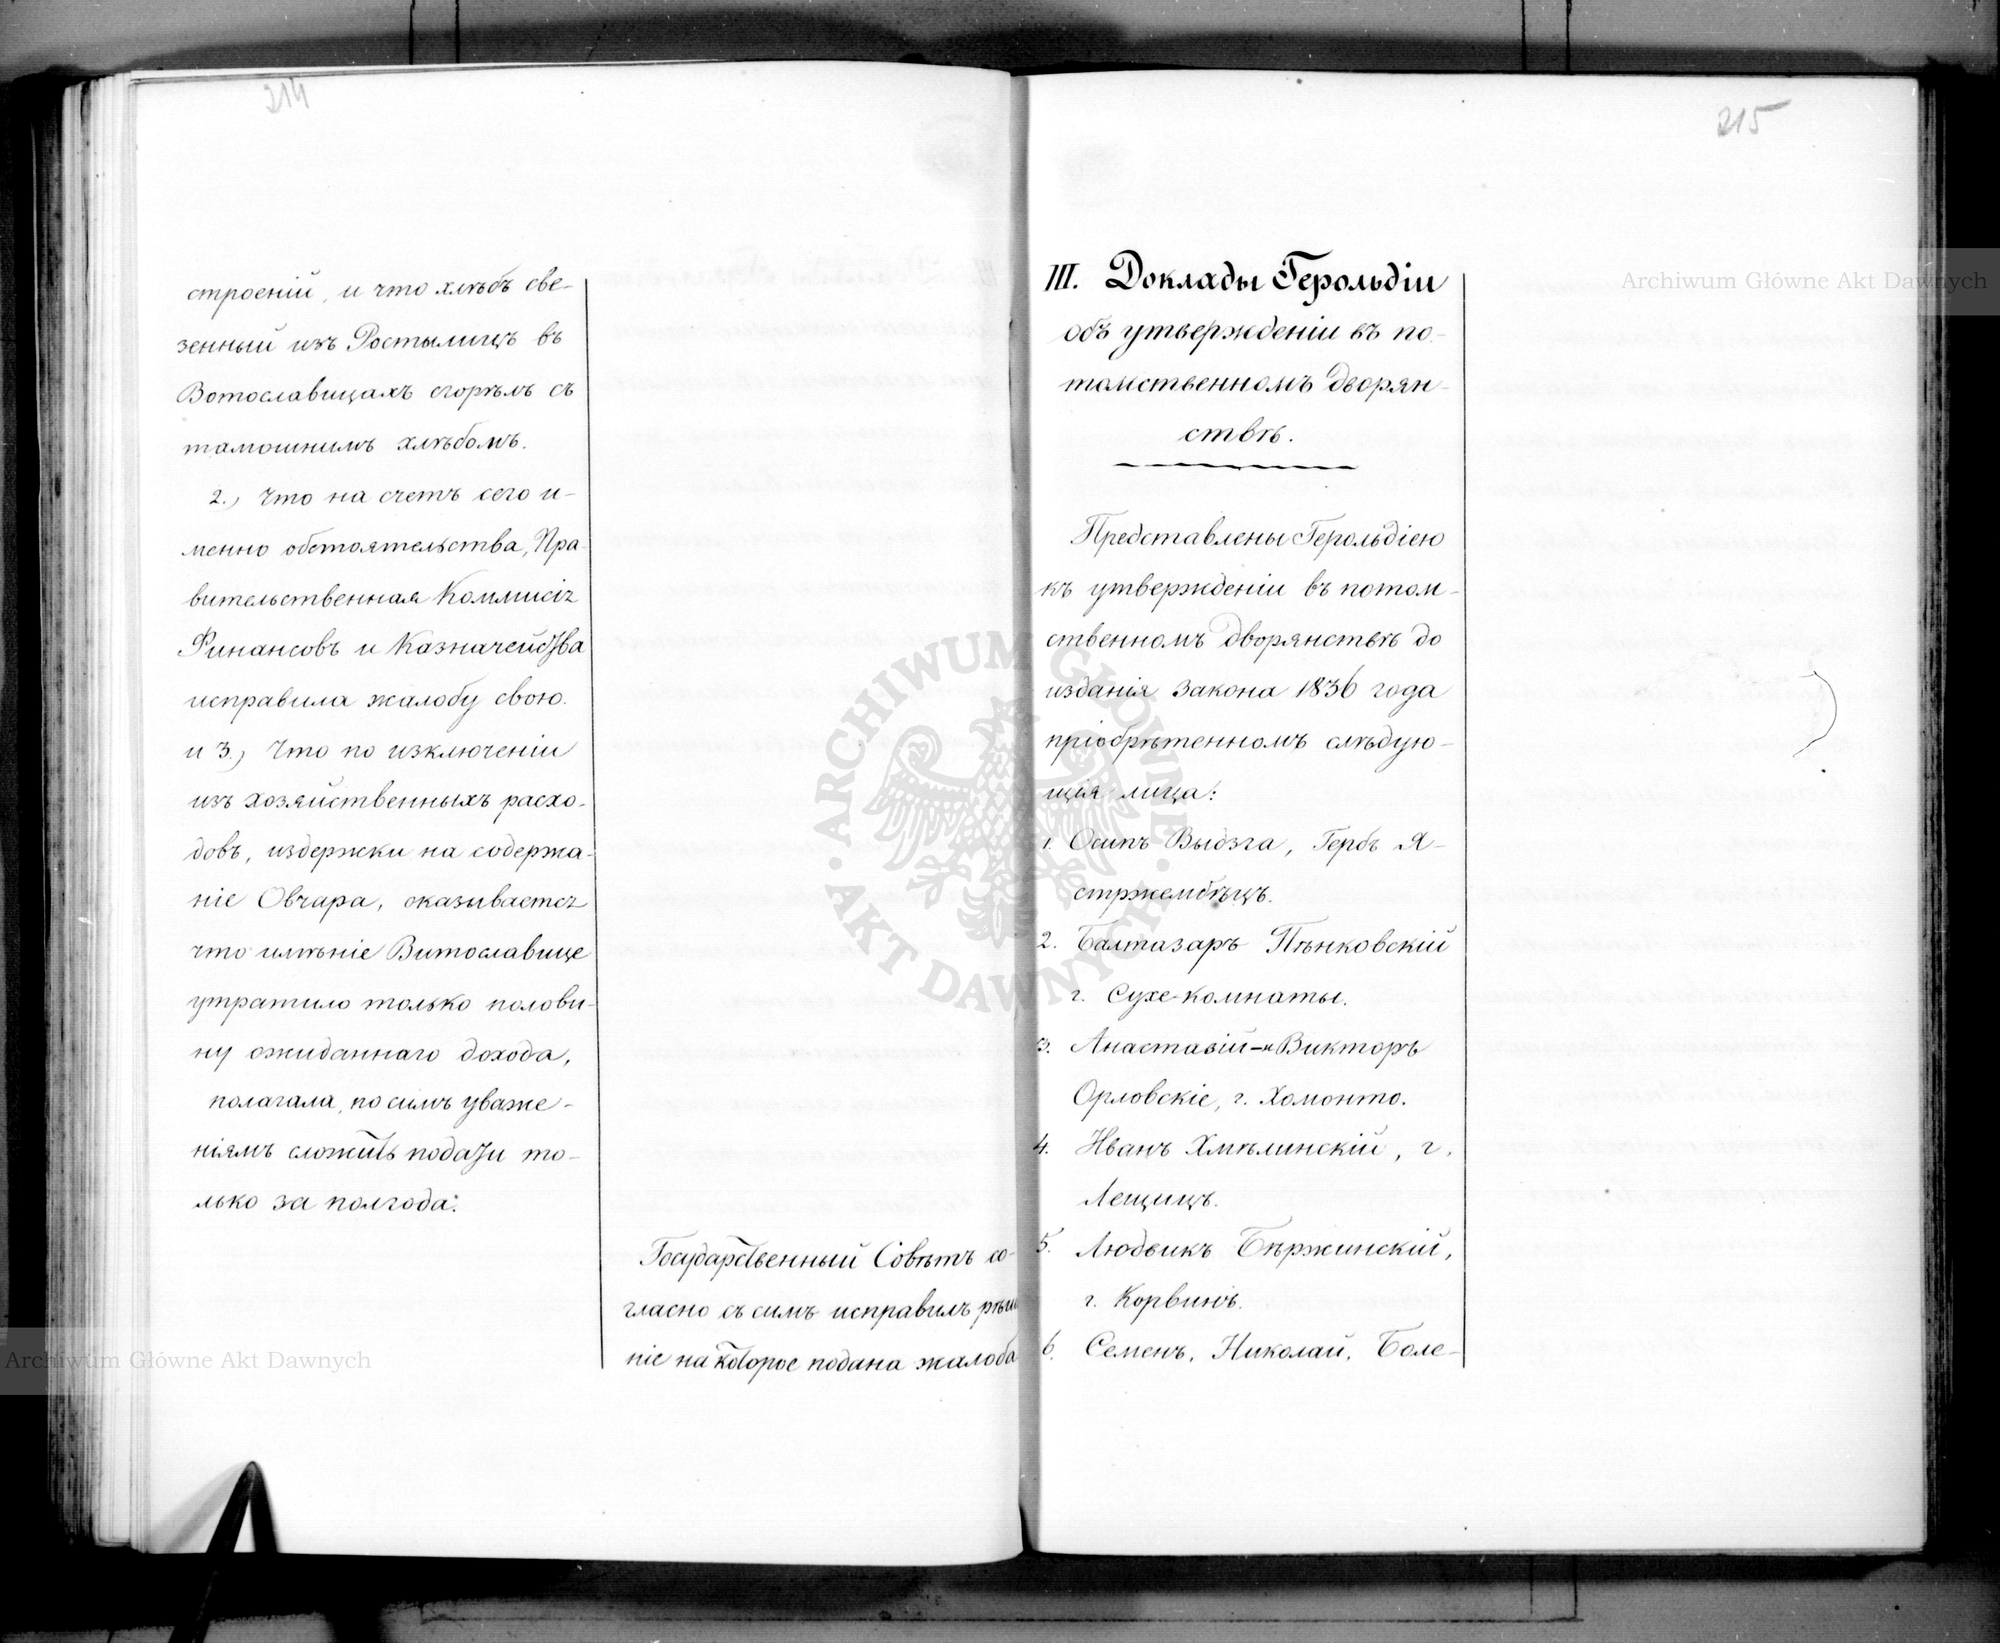 214
строеній, и что хлѣбъ све-
зенный изъ Ростылицъ въ
Вотославицахъ сгорѣлъ съ
тамошнимъ хлѣбомъ.
2.) Что на счетъ сего и-
менно обстоятельства, Пра-
вительственная Коммисія
Финансовъ и Казначейства
исправила жалобу свою.
и 3.) Что по изключеніи
изъ хозяйственныхъ расхо-
довъ, издержки на содержа-
ніе Овчара, оказывается
что имѣніе Витославице
утратило только полови-
ну ожиданнаго дохода,
полагала, по симъ уваже-
ніямъ сложить подати то-
лько за полгода:
Государственный Совѣтъ со-
гласно съ симъ исправилъ рѣше
ніе на которое подана жалоба
215
III. Доклады Герольдіи
объ утвержденіи въ по-
томственномъ дворян-
ствѣ.
Представлены Герольдіею
къ утвержденіи въ потом-
ственномъ дворянствѣ до
изданія Закона 1836 года
пріобрѣтенномъ слѣдую-
щія лица:
1. Осипъ Выдзга, Гербъ Я-
стржембѣцъ.
2. Балтазаръ Пѣнковскій
г. Сухе-комнаты.
3. Анастазій-и Викторъ
Орловскіе, г. Хомонто.
4. Иванъ Хмѣлинскій, г.
Лещицъ.
5. Людвикъ Бѣржинскій,
г. Корвинъ.
6. Семенъ, Николай, Боле-
Archiwum Główne Akt Dawnych
Archiwum Główne Akt Dawnych
ARCHIWUM GŁÓWNE · AKT DAWNYCH ·